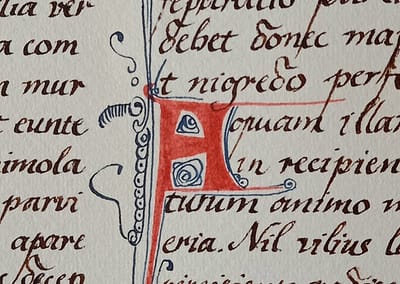 lia ver
a com
n mur
t eunte
nimola
parvi
apare
decen
reparatio
debet donec maj
t nigredo perfe
Aquam illa
in recipien
turum animo n
eria. Nil vilius l